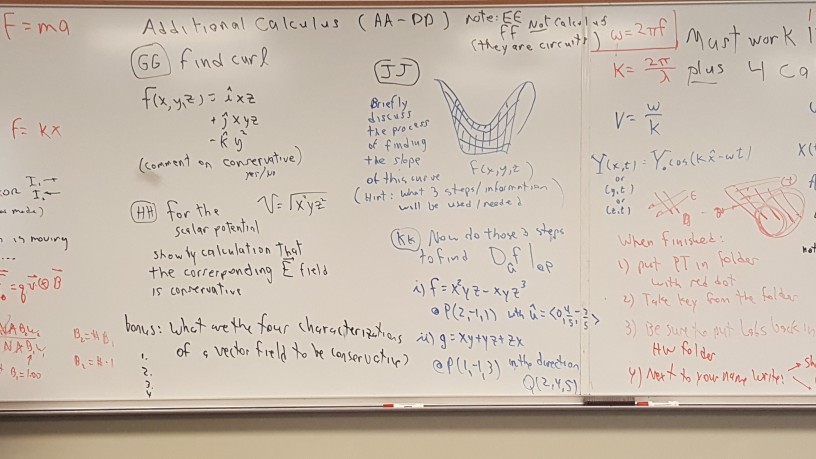 F = ma
F = kx
I₁→
I₂←
is moving
...
= q v⃗ ⊗ B⃗
Additional Calculus (AA - DD)
note: EE
FF Not calculus
(they are circuits)
GG find curl
f(x,y,z) = î xz
+ ĵ xyz
- k̂ y²
(comment on conservative)
yes/no
HH for the
scalar potential
showby calculation that
the corresponding E⃗ field
is conservative
bonus: What are the four characterizations
of a vector field to be conservative)
1.
2.
3.
4
JJ
Briefly
discuss
the process
of finding
the slope
of this curve
F(x,y,z)
(Hint: what 3 steps/information
will be used/needed)
KK Now do those 3 steps
to find D_û f |@P
i) f = x²yz - xyz³
@ P(2,-1,1) with û = <0, 4/5, -3/5>
ii) g = xy + yz + zx
@ P(1,-1,3) in the direction
Q(2,4,5)
ω = 2πf
K = 2π/λ
V = w/k
Y(x,t) = Y₀ cos(k x̂ - wt)
or
(y,t)
or
(z,t)
Must work
plus 4 ca
When finished:
1) put PT in folder
with red dot
2) Take key from the folder
3) Be sure to put Labs back in
HW folder
4) Next to your name write: